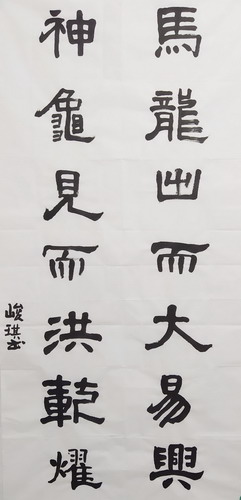 馬龍出而大易興
神龜見而洪範燿
峻琪书